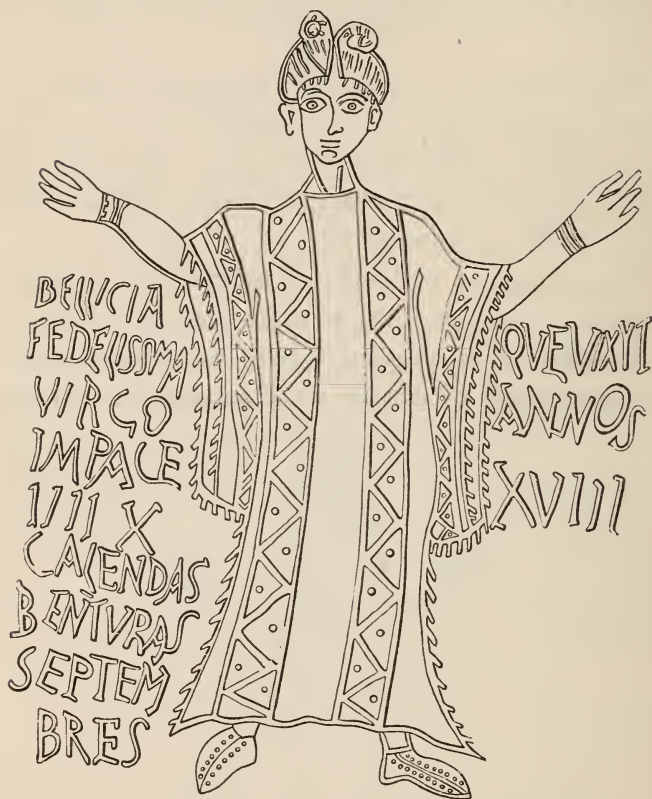 BELLICIA
FEDELISSIMA
VIRGO
IMPACE
IIII X
CALENDAS
BENTVRAS
SEPTEM
BRES
QVEVIXYT
ANNOS
XVIII